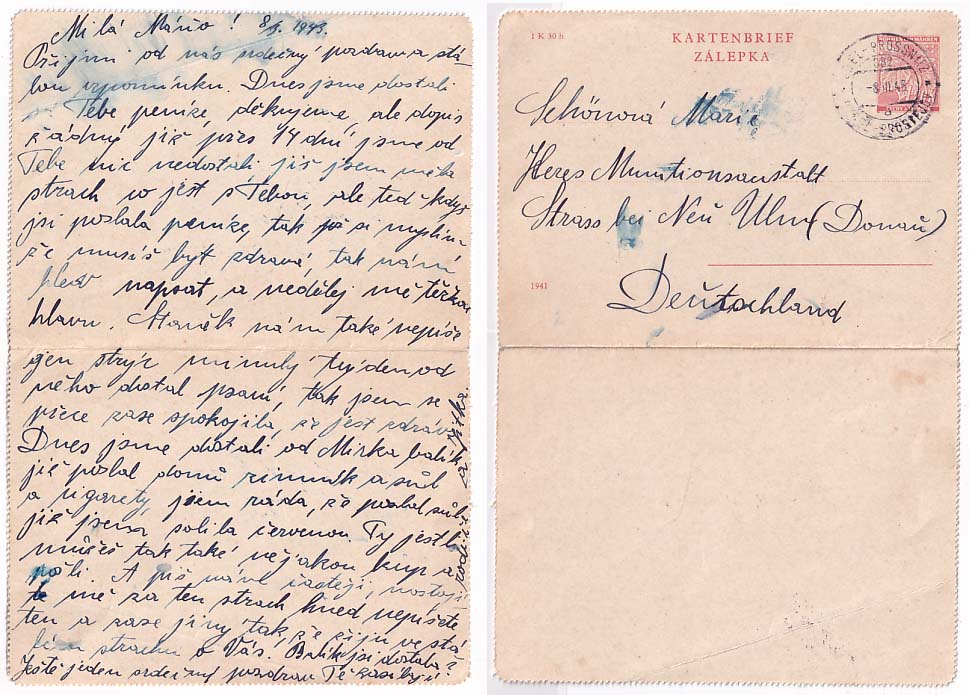 Milá Mářo! 8/3. 1943.
Přijmi od nás srdečný pozdrav a stá-
lou vzpomínku. Dnes jsme dostali
Tebe peníze, děkujeme, ale dopis
žádný již přes 14 dní jsme od
Tebe nic nedostali, již jsem měla
strach co jest s Tebou, ale teď když
jsi poslala peníze, tak já si myslím
že musíš být zdravá, tak nám
hleď napsat, a nedělej mě těžkou
hlavu. Staněk nám také nepíše
jen strýc minulý týden od
něho dostal psaní, tak jsem se
přece zase spokojila, že jest zdráv.
Dnes jsme dostali od Mirka balík
již poslal domů zimník a sůl
a cigarety, jsem ráda, že poslal sůl
již jsem solila červenou. Ty jestli
můžeš tak také nějakou kup a
pošli. A piš nám častěji, nestojí
te mě za ten strach hned nepíšete
ten a zase jiný tak, že žiju ve stá
lém strachu o Vás. Balík jsi dostala?
Ještě jeden srdečný pozdrav Tě zasílají
rodiče a Jitka
1 K 30 h
KARTENBRIEF
ZÁLEPKA
Schönová Marie
Heres Munitionsanstalt
Strass bei Neu Ulm (Donau)
1941
Deutschland